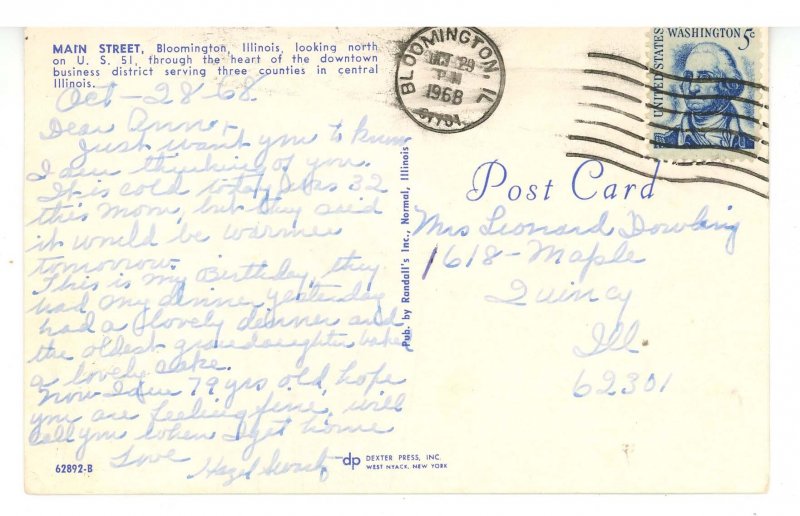 MAIN STREET, Bloomington, Illinois, looking north
on U. S. 51, through the heart of the downtown
business district serving three counties in central
Illinois.
Oct - 28-68
Dear Anna,
Just want you to know
I am thinking of you.
It is cold today was 32
this morn, but they said
it would be warmer
tomorrow.
This is my Birthday, they
had my dinner yesterday
had a lovely dinner and
the oldest granddaughter bake
a lovely cake.
Now I am 79 yrs old, hope
you are feeling fine, will
call you when I get home
Love
Hazel
62892-B
Pub. by Randall's Inc., Normal, Illinois
dp DEXTER PRESS, INC.
WEST NYACK, NEW YORK
BLOOMINGTON, IL
OCT 29
PM
1968
61701
UNITED STATES
WASHINGTON 5c
Post Card
Mrs Leonard Dowling
1618 - Maple
Quincy
Ill
62301